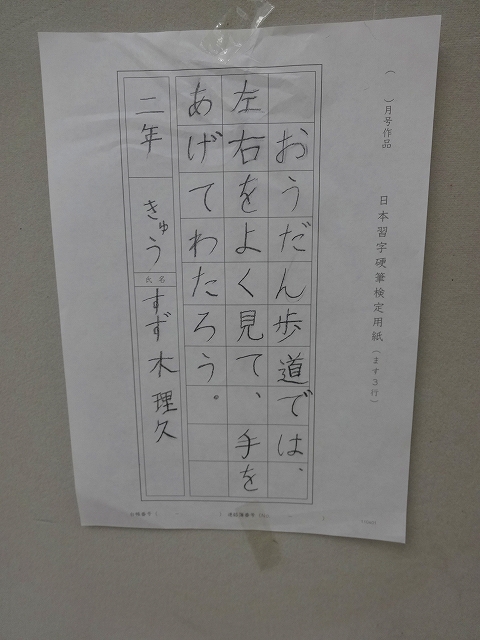 ( )月号作品
日本習字硬筆検定用紙(ます3行)
おうだん歩道では、
左右をよく見て、手を
あげてわたろう。
二年 きゅう 氏名 すず木 理久